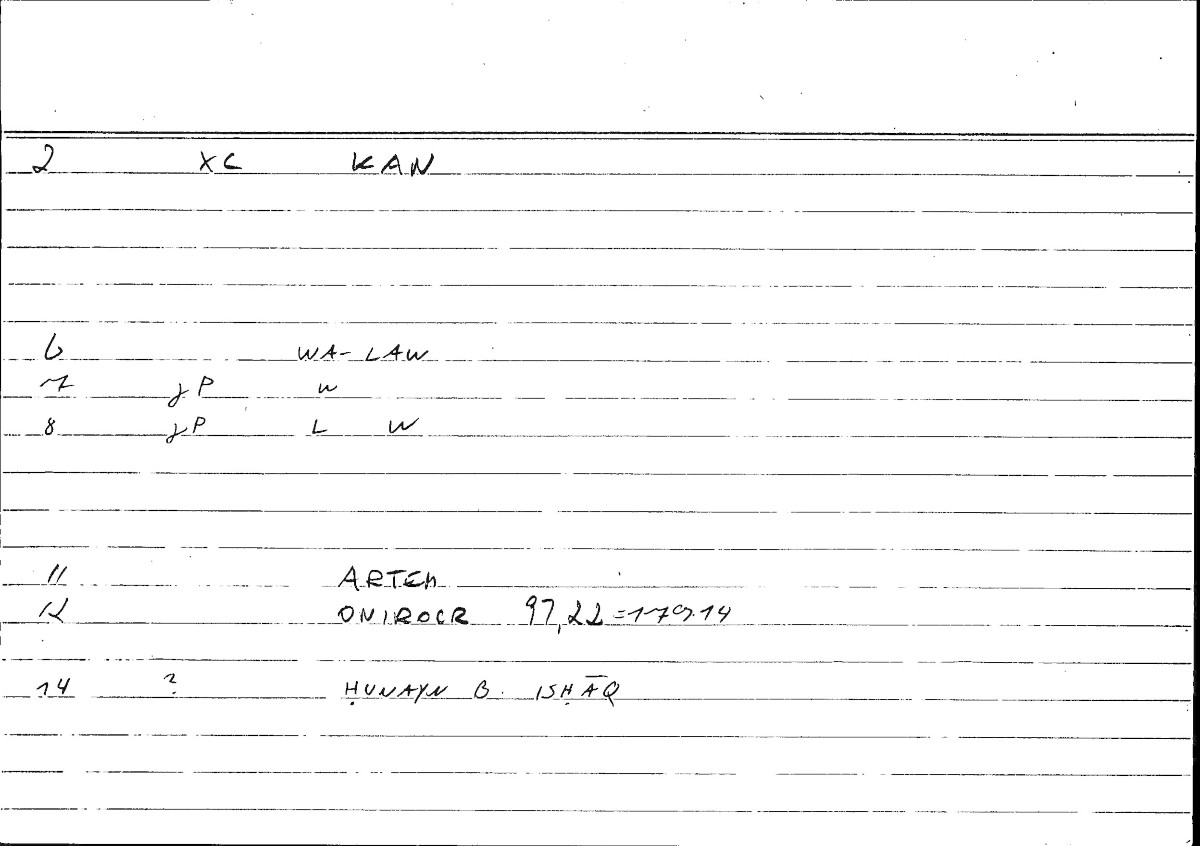 2 XC KAN
6 WA-LAW
7 jP W
8 jP L W
11 ARTEM
12 ONIROCR 97,22=179.14
14 ? ḤUNAYN B. ISḤĀQ